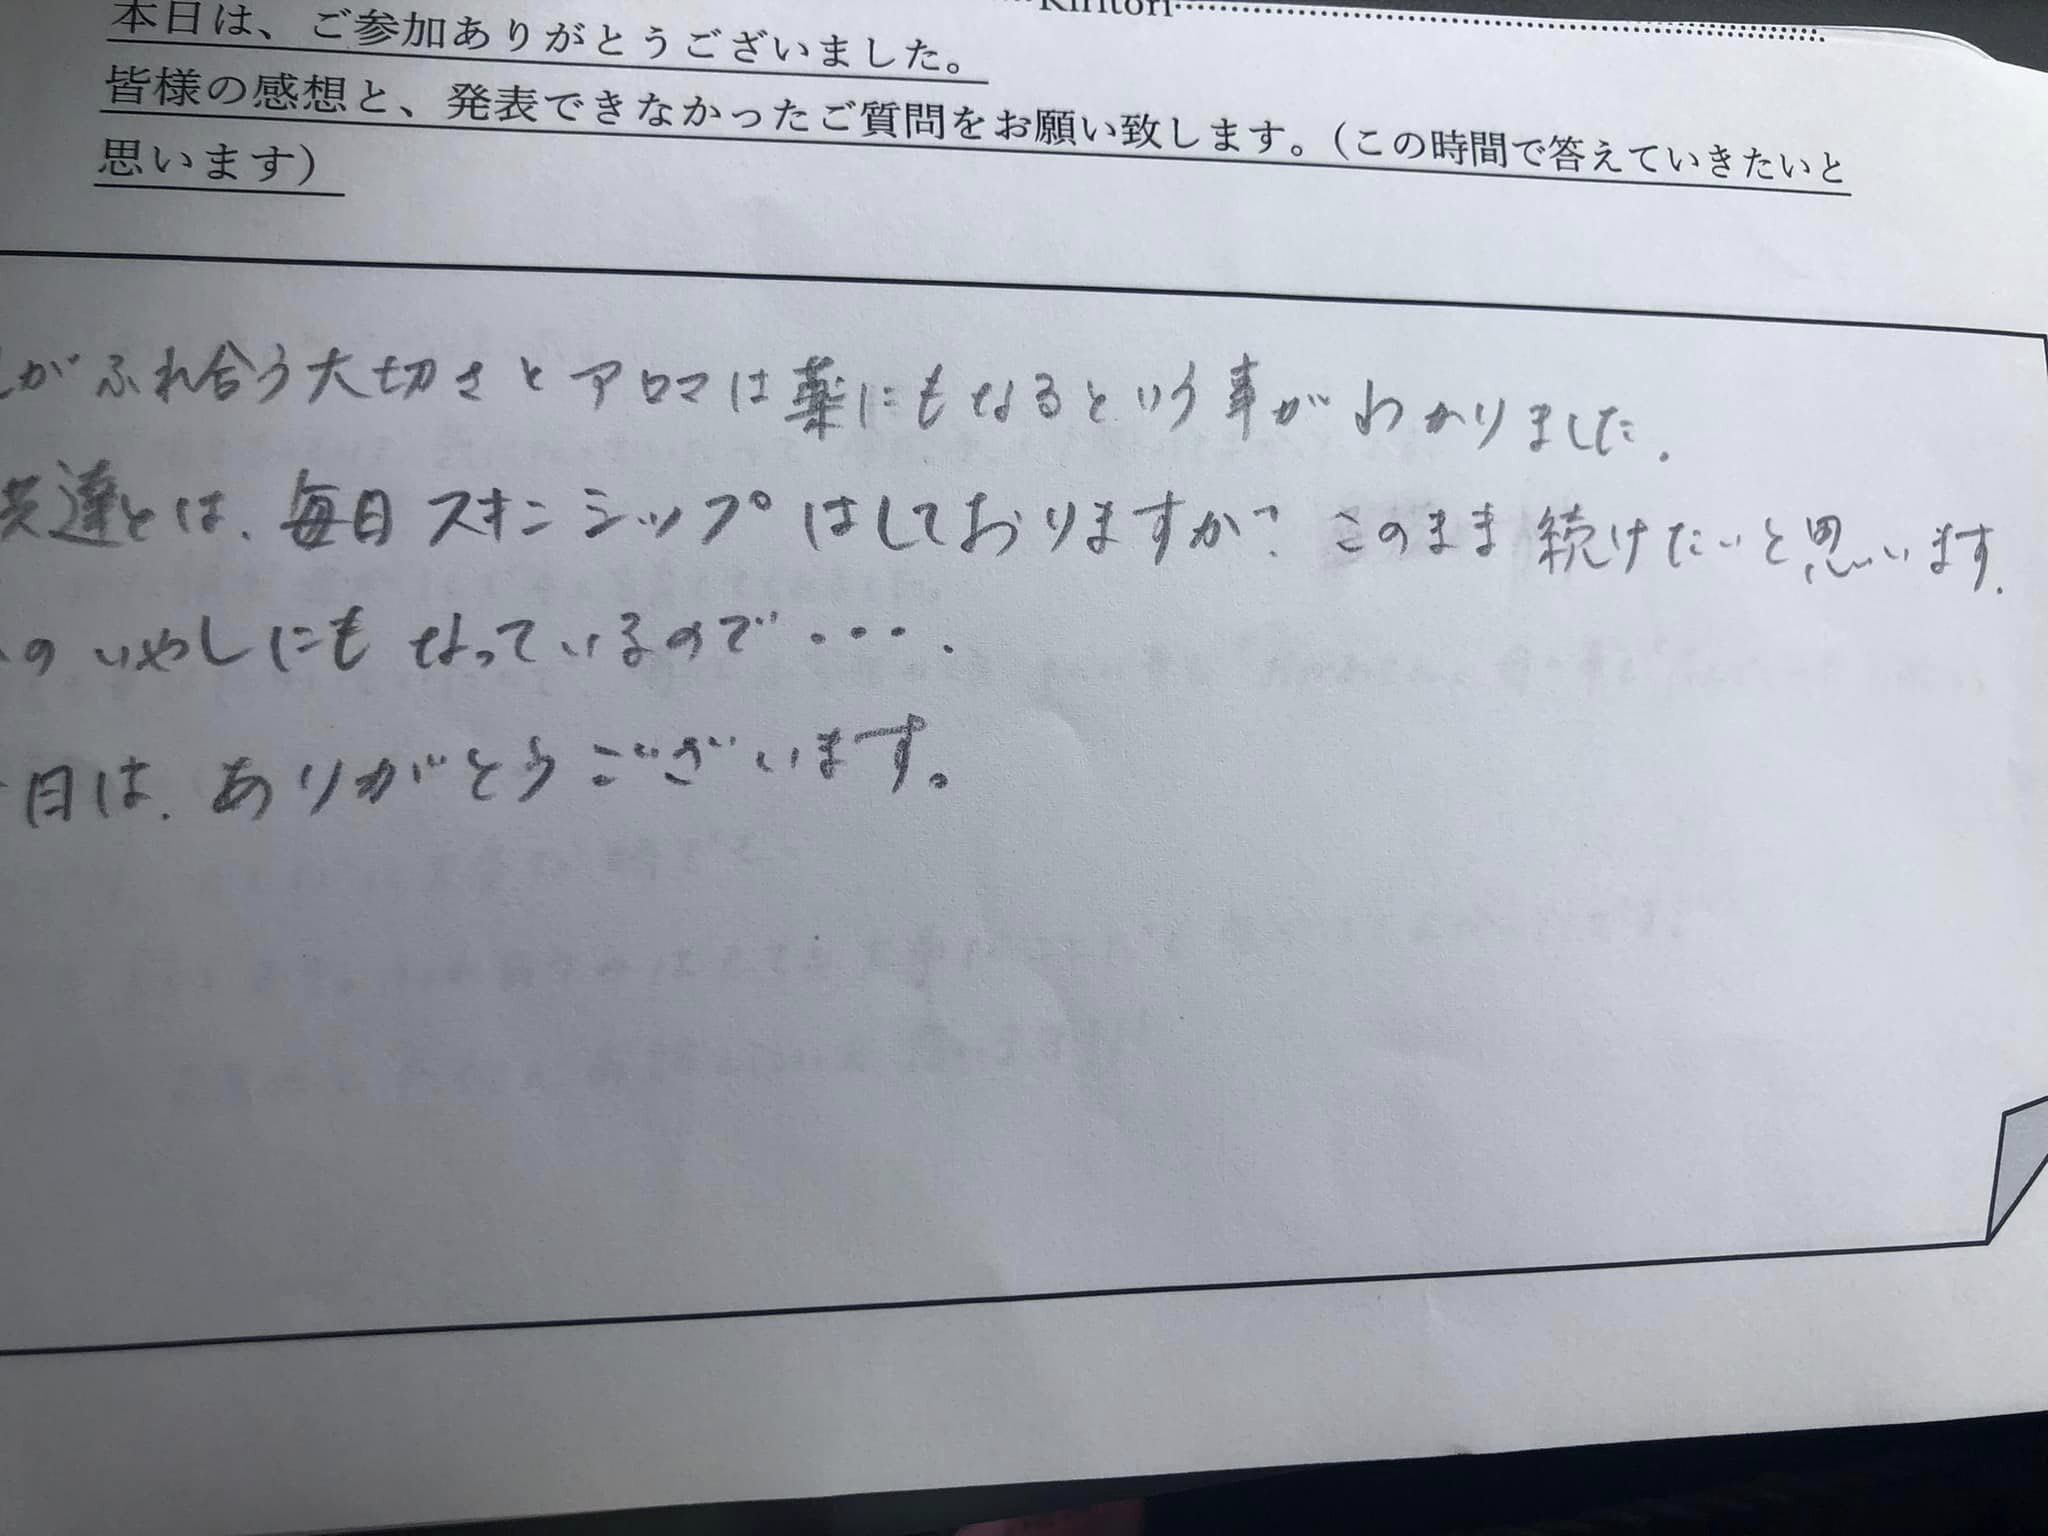 Kiritori
本日は、ご参加ありがとうございました。
皆様の感想と、発表できなかったご質問をお願い致します。（この時間で答えていきたいと
思います）
がふれ合う大切さとアロマは薬にもなるという事がわかりました.
達とは、毎日スキンシップはしておりますが、このまま続けたいと思います.
のいやしにもなっているので・・・.
日は、ありがとうございます。